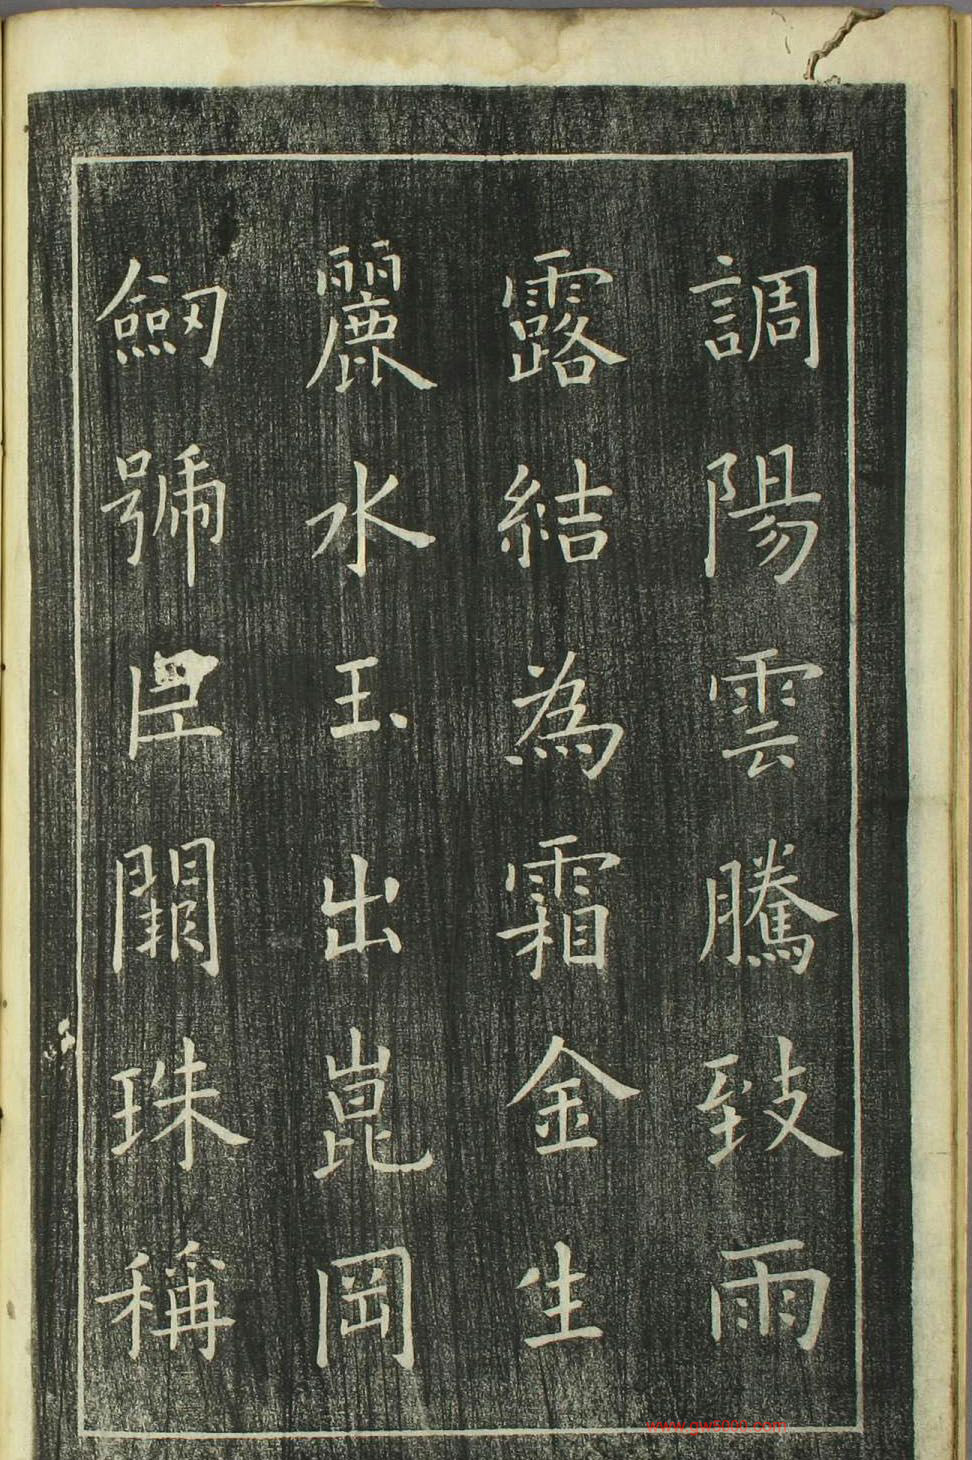 調陽雲騰致雨
露結為霜金生
麗水玉出崑岡
劒號巨闕珠稱
www.gw5000.com